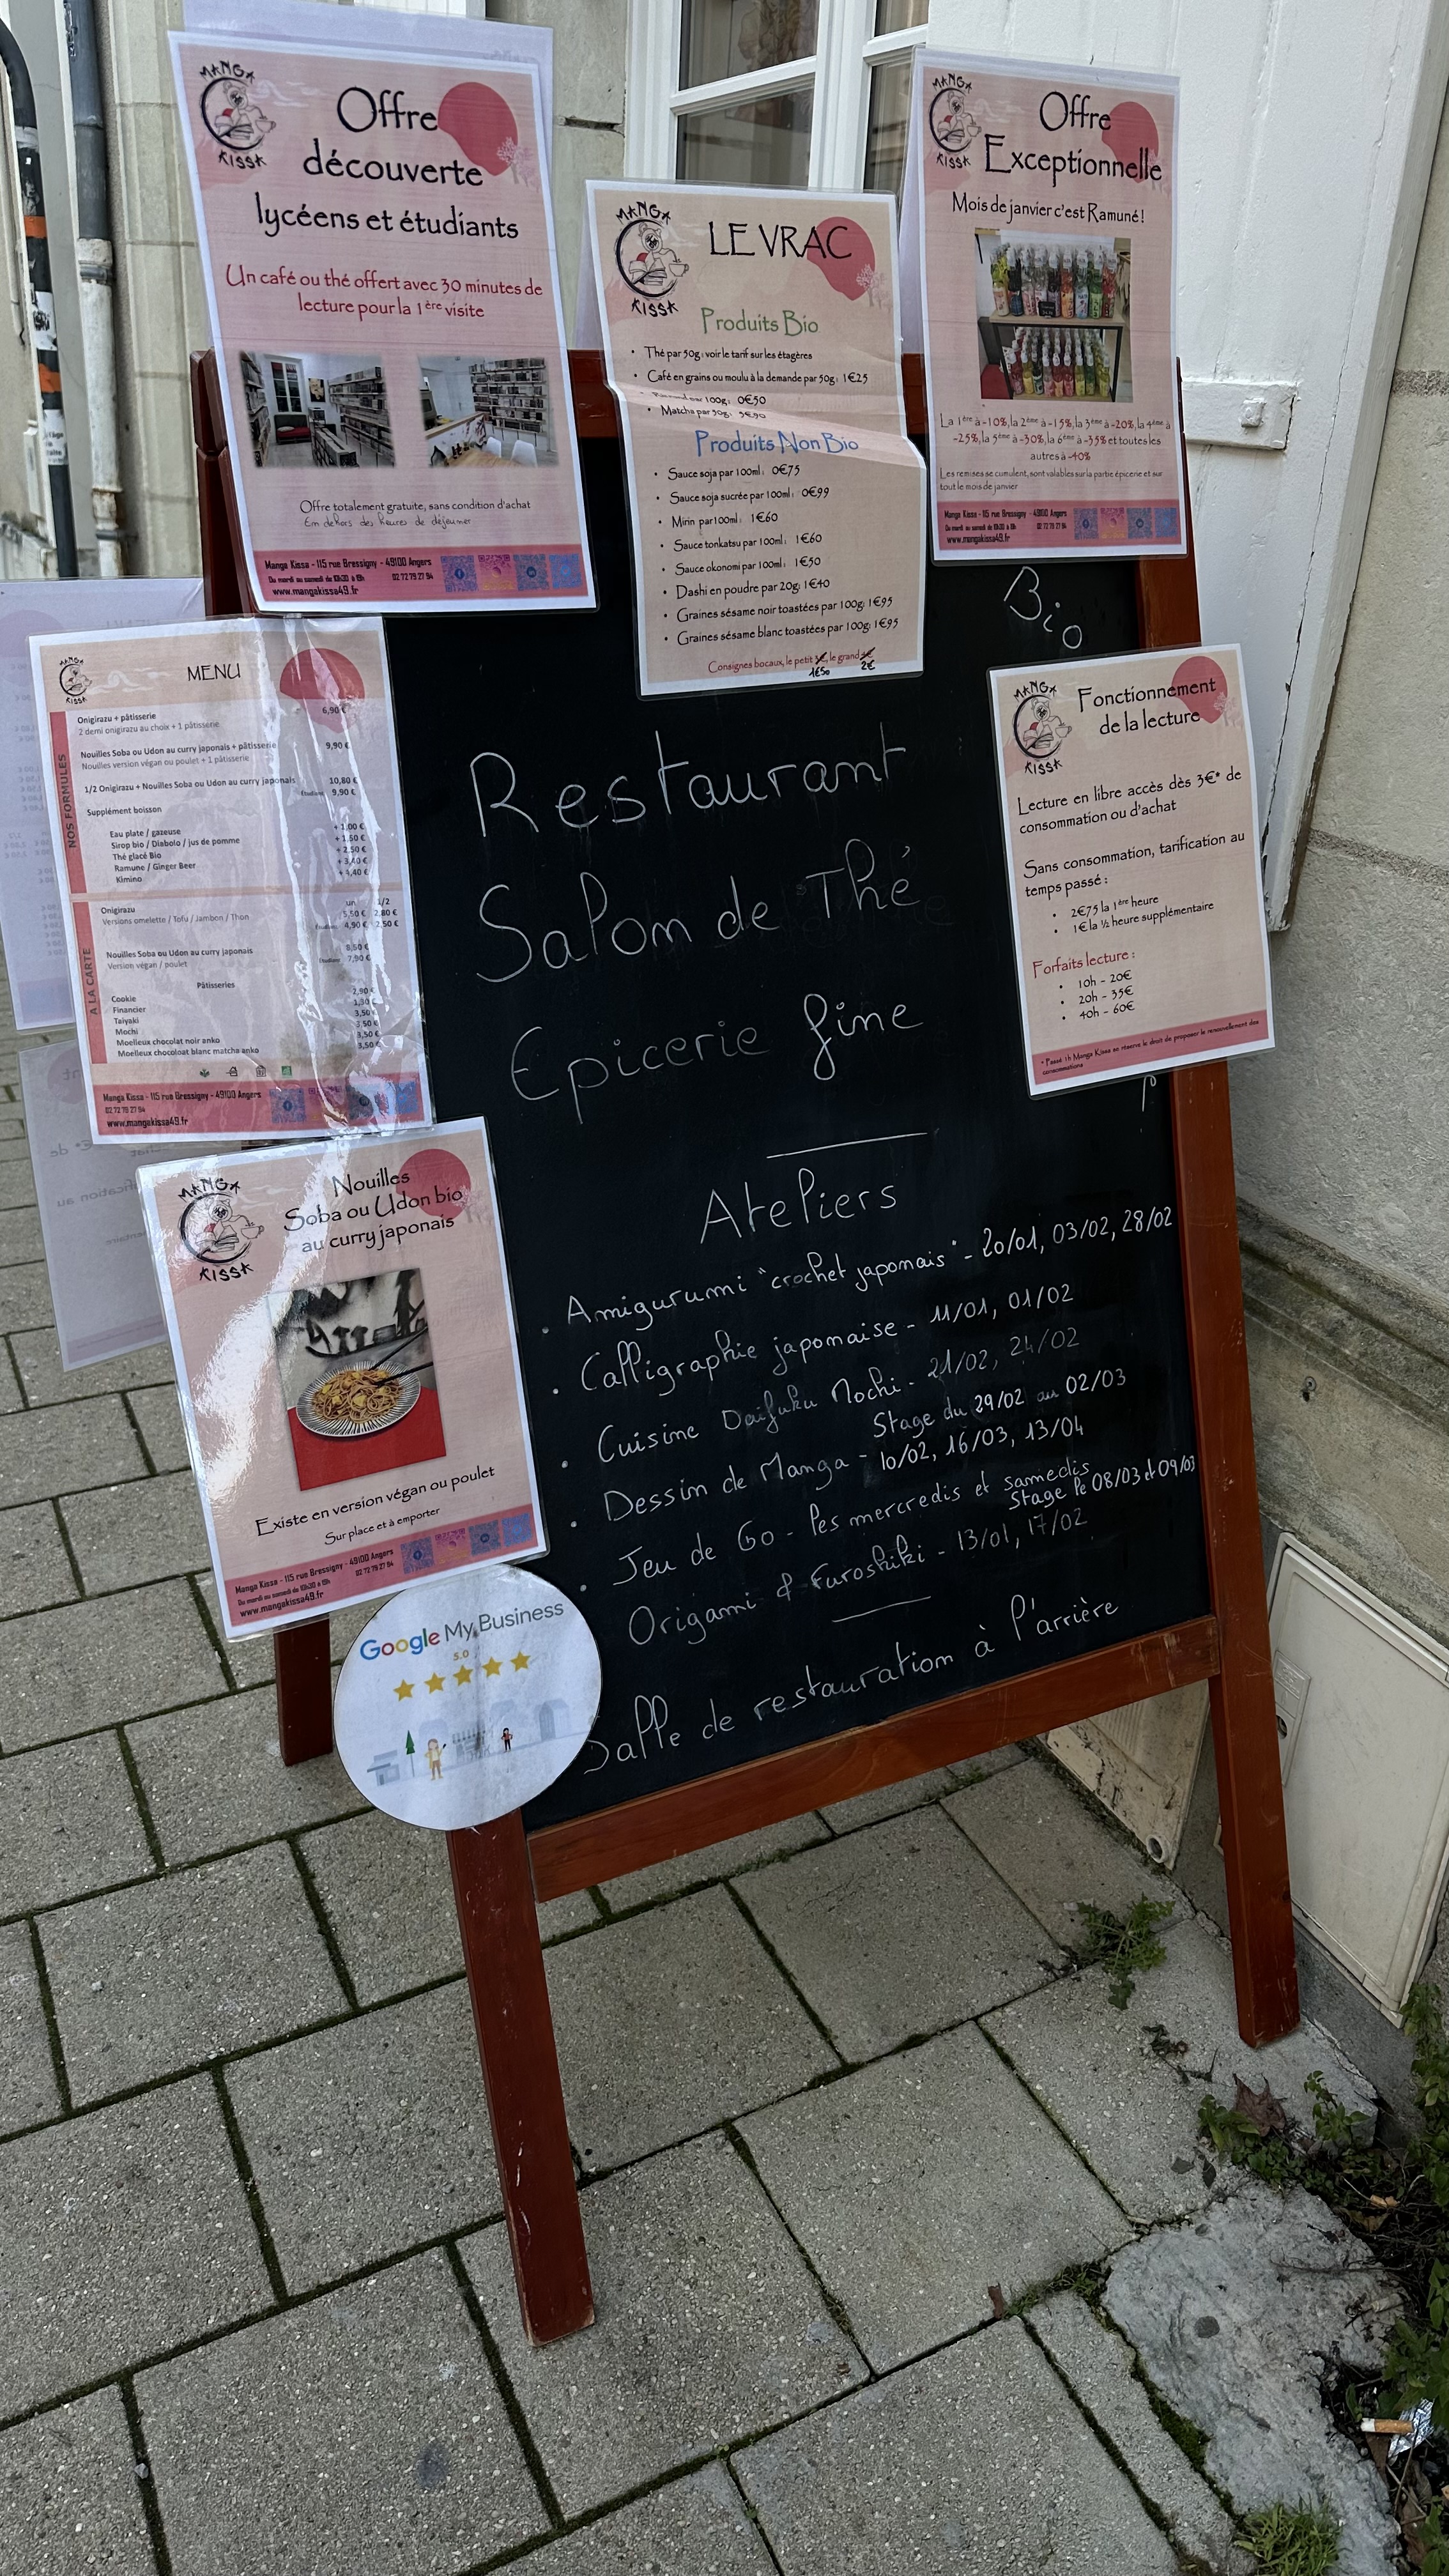 MANGA
KISSA
Offre
découverte
lycéens et étudiants
Un café ou thé offert avec 30 minutes de
lecture pour la 1ère visite
Offre totalement gratuite, sans condition d'achat
En dehors des heures de déjeuner
Manga Kissa - 115 rue Bressigny - 49100 Angers
Du mardi au samedi de 10h30 à 19h 02 72 79 27 94
www.mangakissa49.fr
MANGA
KISSA
LE VRAC
Produits Bio
• Thé par 50g: voir le tarif sur les étagères
• Café en grains ou moulu à la demande par 50g: 1€25
par 100g: 0€50
• Matcha par 50g:
Produits Non Bio
• Sauce soja par 100ml: 0€75
• Sauce soja sucrée par 100ml: 0€99
• Mirin par 100ml: 1€60
• Sauce tonkatsu par 100ml: 1€60
• Sauce okonomi par 100ml: 1€50
• Dashi en poudre par 20g: 1€40
• Graines sésame noir toastées par 100g: 1€95
• Graines sésame blanc toastées par 100g: 1€95
Consignes bocaux, le petit 1€50, le grand 2€
MANGA
KISSA
Offre
Exceptionnelle
Mois de janvier c'est Ramuné!
La 1ère à -10%, la 2ème à -15%, la 3ème à -20%, la 4ème à
-25%, la 5ème à -30%, la 6ème à -35% et toutes les
autres à -40%
Les remises se cumulent, sont valables sur la partie épicerie et sur
tout le mois de janvier
Manga Kissa - 115 rue Bressigny - 49100 Angers
Du mardi au samedi de 10h30 à 19h 02 72 79 27 94
www.mangakissa49.fr
Bio
MANGA
KISSA
MENU
NOS FORMULES
Onigirazu + pâtisserie 6,90 €
2 demi onigirazu au choix + 1 pâtisserie
Nouilles Soba ou Udon au curry japonais + pâtisserie 9,90 €
Nouilles version végan ou poulet + 1 pâtisserie
1/2 Onigirazu + Nouilles Soba ou Udon au curry japonais 10,80 €
Étudiant 9,90 €
Supplément boisson
Eau plate / gazeuse + 1,00 €
Sirop bio / Diabolo / jus de pomme + 1,50 €
Thé glacé Bio + 2,50 €
Ramune / Ginger Beer + 3,40 €
Kimino + 4,40 €
A LA CARTE
un 1/2
Onigirazu 5,50 € 2,80 €
Versions omelette / Tofu / Jambon / Thon Étudiant 4,90 € 2,50 €
Nouilles Soba ou Udon au curry japonais 8,50 €
Version végan / poulet Étudiant 7,90 €
Pâtisseries
Cookie 2,90 €
Financier 1,30 €
Taiyaki 3,50 €
Mochi 3,50 €
Moelleux chocolat noir anko 3,50 €
Moelleux chocoloat blanc matcha anko 3,50 €
Manga Kissa - 115 rue Bressigny - 49100 Angers
02 72 79 27 94
www.mangakissa49.fr
MANGA
KISSA
Fonctionnement
de la lecture
Lecture en libre accès dès 3€* de
consommation ou d'achat
Sans consommation, tarification au
temps passé :
• 2€75 la 1ère heure
• 1€ la ½ heure supplémentaire
Forfaits lecture :
• 10h - 20€
• 20h - 35€
• 40h - 60€
* Passé 1h Manga Kissa se réserve le droit de proposer le renouvellement des
consommations
Restaurant
Salon de Thé
Epicerie fine
MANGA
KISSA
Nouilles
Soba ou Udon bio
au curry japonais
Existe en version végan ou poulet
Sur place et à emporter
Manga Kissa - 115 rue Bressigny - 49100 Angers
Du mardi au samedi de 10h30 à 19h 02 72 79 27 94
www.mangakissa49.fr
Ateliers
. Amigurumi "crochet japonais" - 20/01, 03/02, 28/02
. Calligraphie japonaise - 11/01, 01/02
. Cuisine Daifuku Mochi - 21/02, 24/02
Stage du 29/02 au 02/03
. Dessin de Manga - 10/02, 16/03, 13/04
. Jeu de Go - les mercredis et samedis
Stage le 08/03 et 09/03
Origami & Furoshiki - 13/01, 17/02
Salle de restauration à l'arrière
Google My Business
5.0